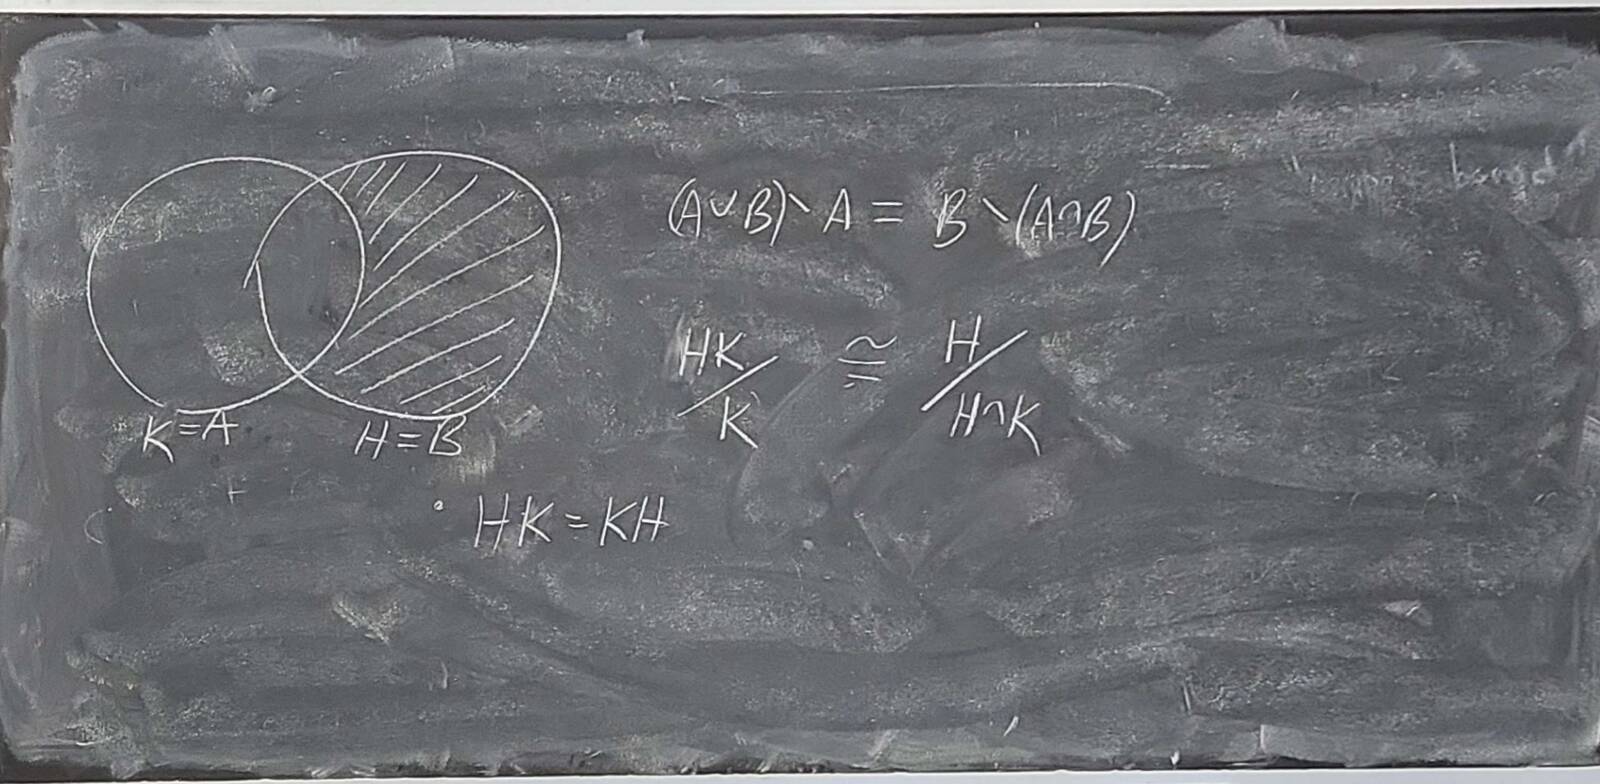 (A∪B)∖A = B∖(A∩B)
HK/K ≅ H/H∩K
K=A H=B
HK=KH